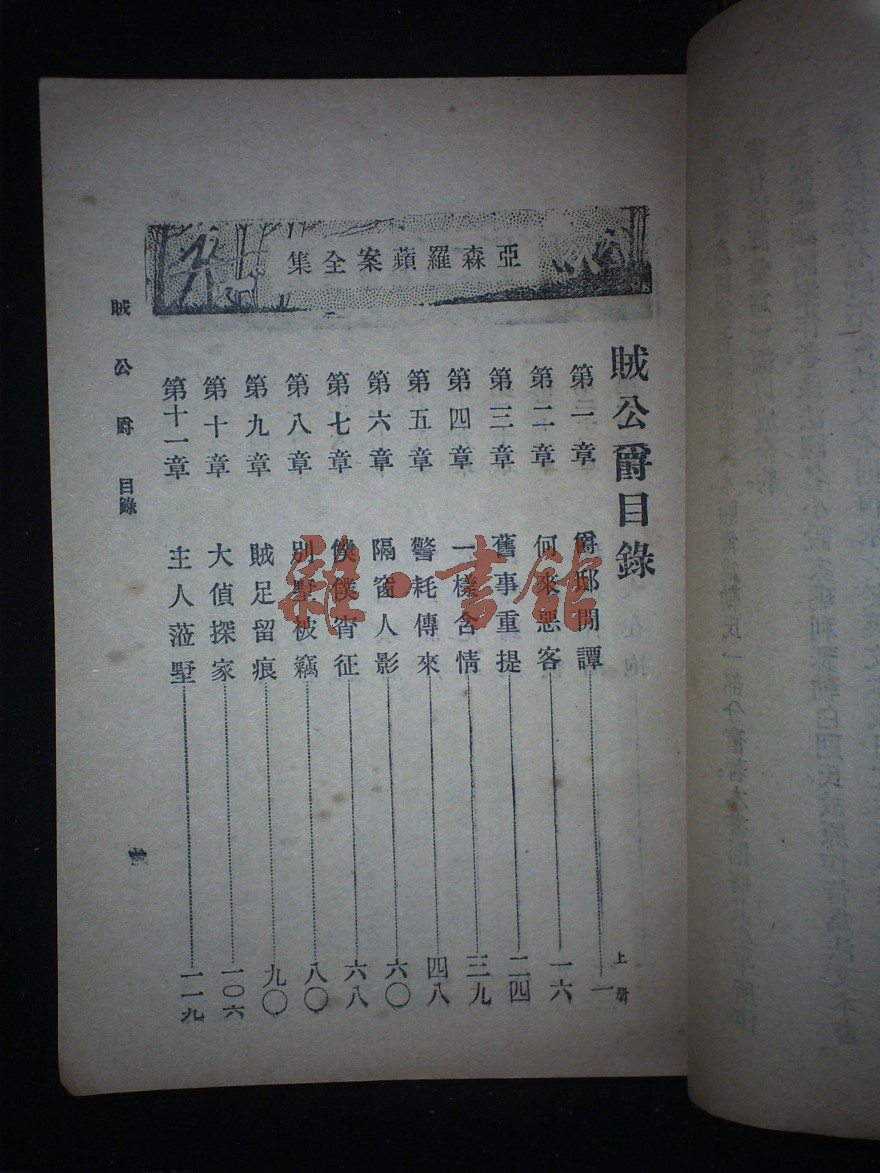 亞森羅蘋案全集
賊公爵目錄
上册
第一章 爵邸閒譚 一
第二章 何來惡客 一六
第三章 舊事重提 二四
第四章 一樣含情 三九
第五章 警耗傳來 四八
第六章 隔窗人影 六〇
第七章 僕僕宵征 六八
第八章 別墅被竊 八〇
第九章 賊足留痕 九〇
第十章 大偵探家 一〇六
第十一章 主人蒞墅 一一九
賊公爵 目錄
雜·書館